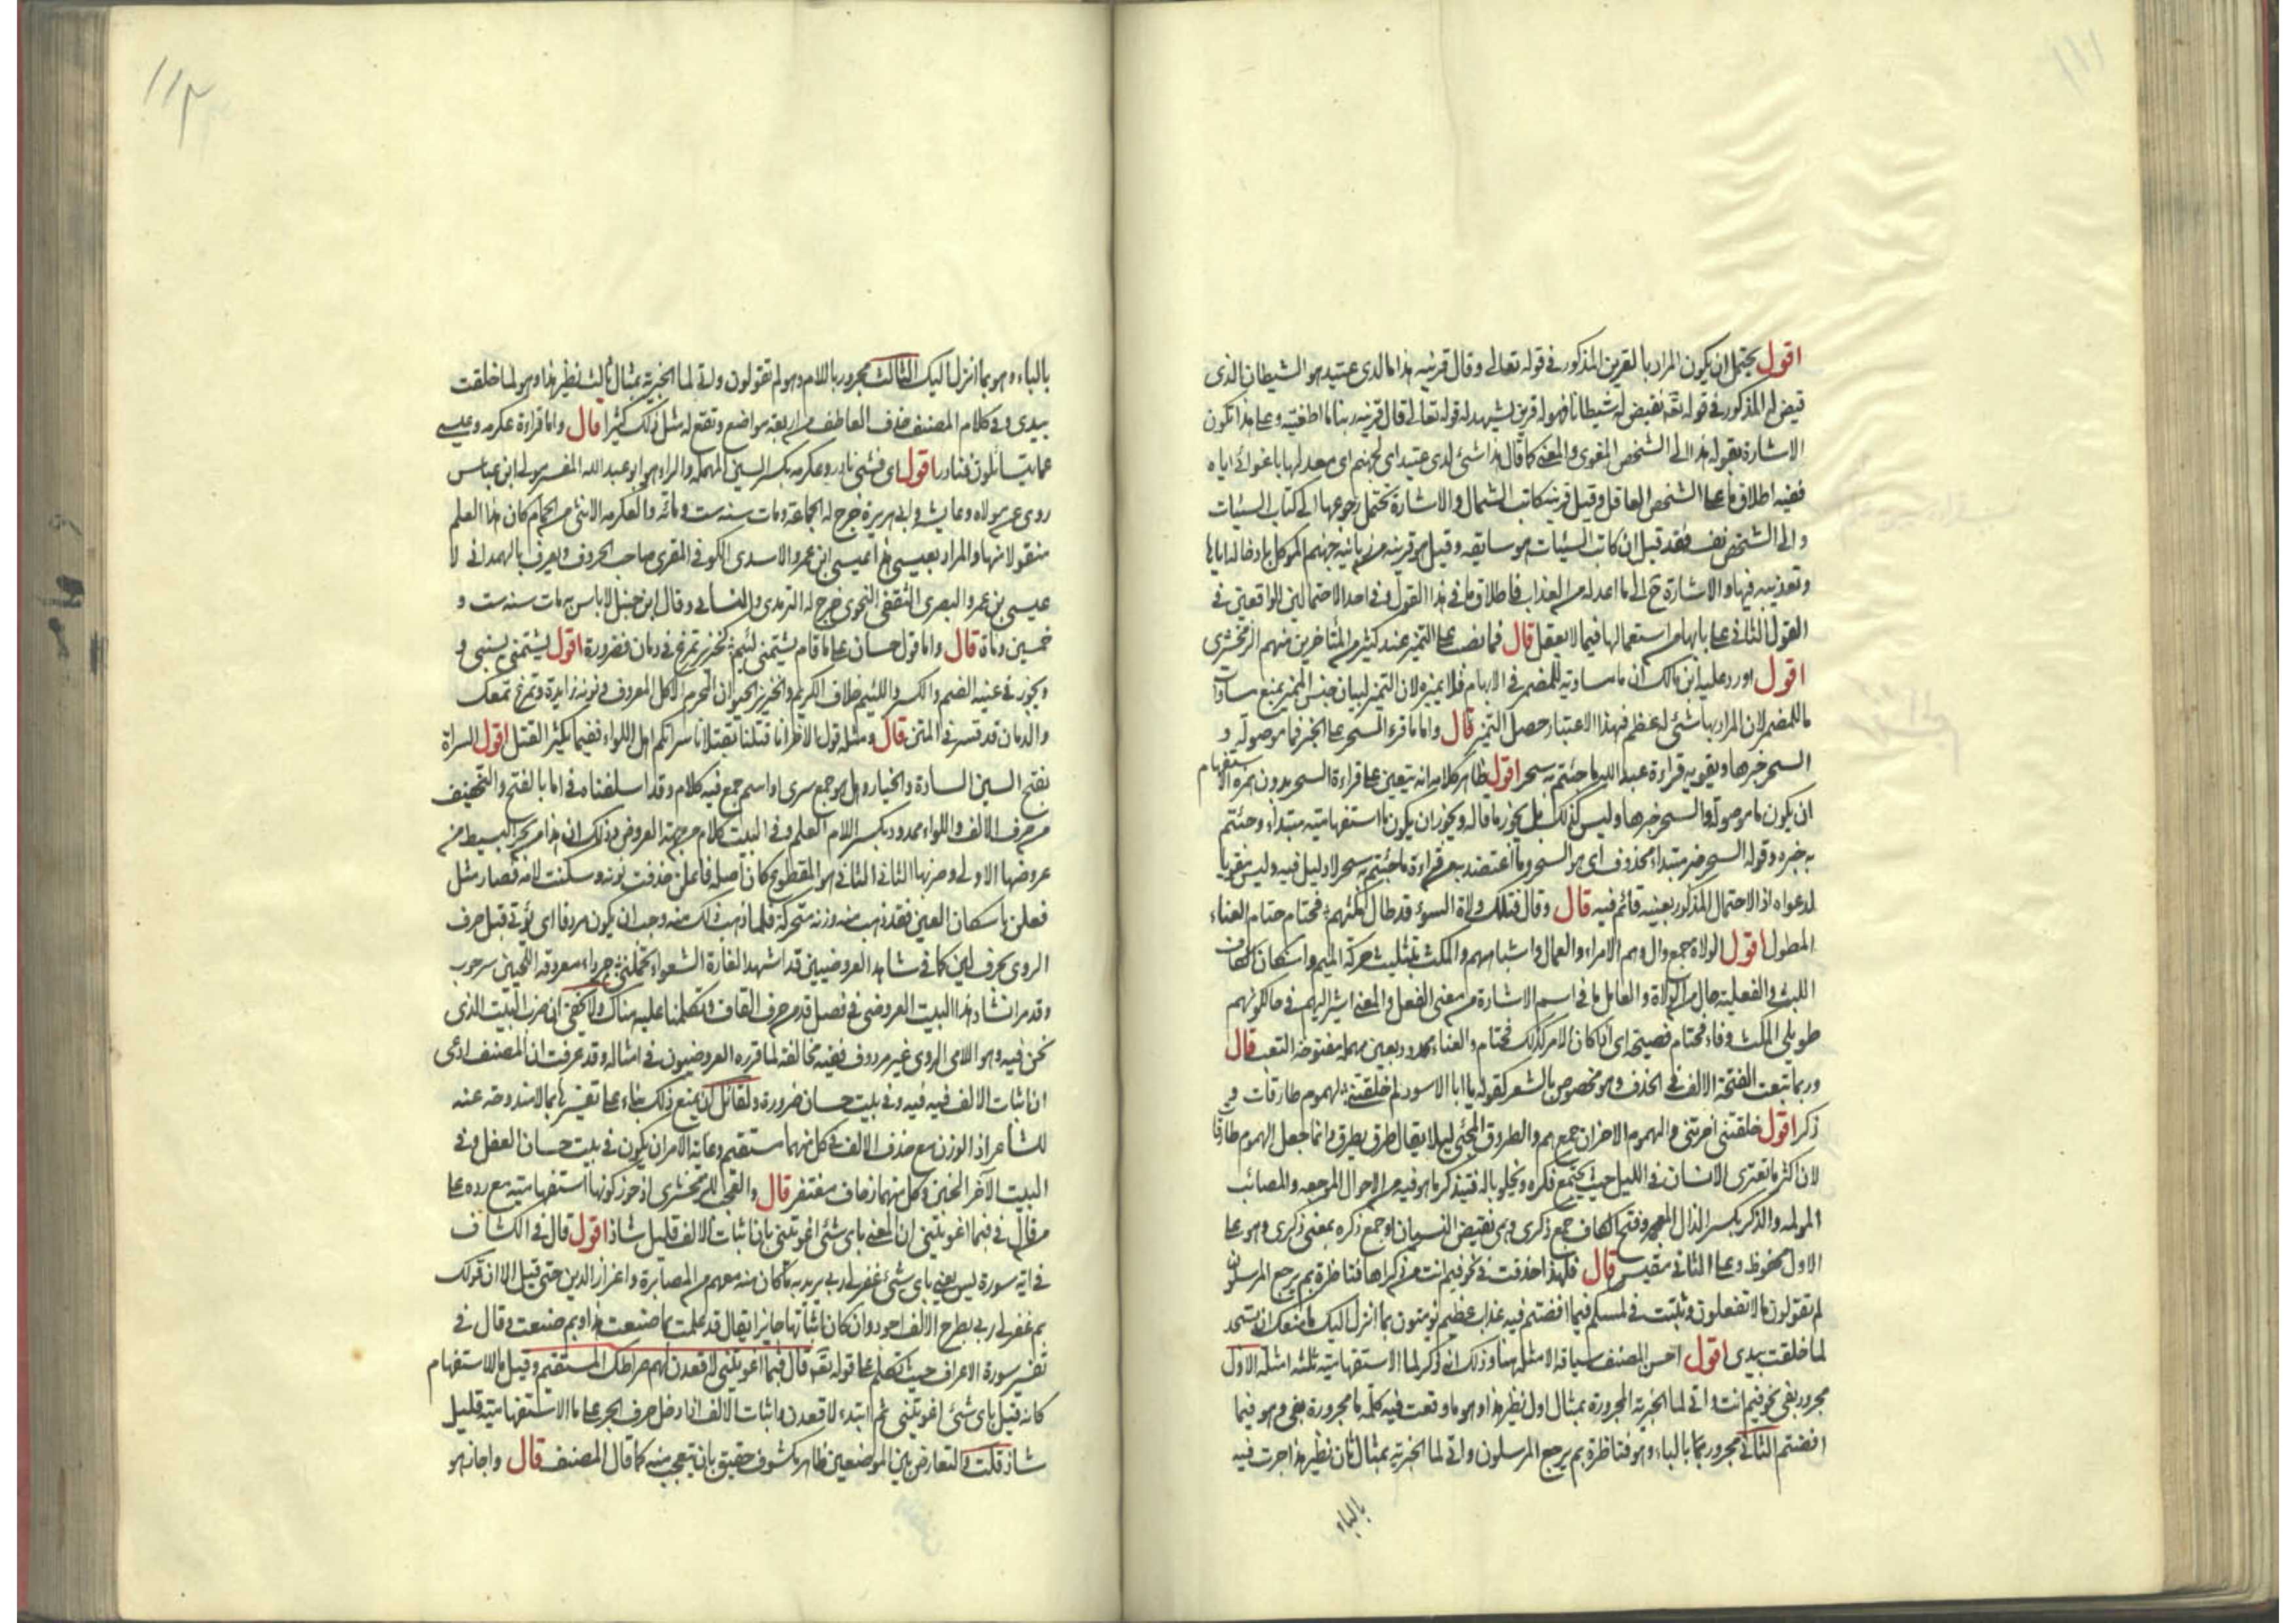 ١١١
اقول يحتمل ان يكون المراد بالقرين المذكور في قوله تعالى وقال قرينه هذا ما لدي عتيد هو الشيطان الذي
قيض له المذكور في قوله تع نقيض له شيطانا فهو له قرين يشهد له قوله تعالى قال قرينه ربنا ما اطغيته وعلى هذا تكون
الاشارة بقوله هذا الى الشخص المغوى والمعنى كما قال هذا شئ لدي عتيد اي لجهنم اي معد لها باغوائي اياه
ففيه اطلاق ما على الشخص العاقل وقيل قرينه كاتب الشمال والاشارة يحتمل رجوعها الى كتاب السيئات
والى الشخص نفسه فقد قيل ان كاتب السيئات هو سايقه وقيل هو قرينه من زبانية جهنم الموكل بادخاله اياها
وتعذيبه فيها والاشارة ح الى ما اعد له من العذاب فاطلاق ما في هذا القول وفي احد الاحتمالين الواقعين في
القول الثاني على بابها من استعمالها فيما لا يعقل قال فما نصب على التميز عند كثير من المتأخرين منهم الزمخشري
اقول اورد عليه ابن مالك ان ما مساوية للمضمر في الابهام فلا يميزه لان التميز لبيان جنس المميز يمنع مساوات
ما للمضمر لان المراد بها شئ له عظم فبهذا الاعتبار حصل التميز قال واما ما قرء السحر على الخبر فما موصولة و
السحر خبرها ويقويه قراءة عبد الله ما جئتم به سحر اقول ظاهر كلامه انه يتعين على قراءة السحر بدون همزة الاستفهام
ان يكون ما موصولة والسحر خبرها وليس كذلك بل يجوز ما قاله ويجوز ان يكون ما استفهامية مبتداء وجئتم
به خبره وقوله السحر خبر مبتداء محذوف اي هو السحر وما اعتضد به من قراءة ما جئتم به سحر لا دليل فيه وليس مقويا
لدعواه اذ الاحتمال المذكور بعينه قائم فيه قال وقال فتلك ولاة السوء قد طال مكثهم فحتام حتام العناء
المطول اقول الولاة جمع وال وهم الامراء والعمال واشباههم والمكث بتثليث حركة الميم واسكان الكاف
اللبث والفعلية حال من الولاة والعامل ما في اسم الاشارة من معنى الفعل والمعنى اشير اليهم في حال كونهم
طويلي المكث وفاء فحتام فصيحة اي اذا كان الامر كذلك فحتام والعناء ممدود بعين مهملة مفتوحة التعب قال
وربما تبعت الفتحة الالف في الحذف وهو مخصوص بالشعر كقوله يا ابا الاسود لم خلفتني لهموم طارقات و
ذكر اقول خلفتني اخرتني والهموم الاحزان جمع هم والطروق المجئ ليلا يقال طرق يطرق وانما جعل الهموم طارقا
لان اكثر ما تعتري الانسان في الليل حيث يجتمع فكره ويخلو باله فيتذكر ما هو فيه من الاحوال الموجعه والمصائب
المولمه والذكر بكسر الذال المعجمه وفتح الكاف جمع ذكرى وهي نقيض النسيان او جمع ذكره بمعنى ذكرى وهو على
الاول محفوظ وعلى الثاني مقيس قال فلهذا حذفت في نحو فيم انت من ذكراها فناظرة بم يرجع المرسلون
لم تقولون ما لا تفعلون وثبتت في لمسكم فيما افضتم فيه عذاب عظيم يؤمنون بما انزل اليك ما منعك ان تسجد
لما خلقت بيدي اقول احسن المصنف سياقة الامثلة هنا وذلك انه ذكر لما الاستفهامية ثلثة امثلة الاول
مجرور بفي نحو فيم انت واتى لما الخبرية المجرورة بمثال اول نظير هذا وهو ما وقعت فيه كلمة ما مجرورة بفي وهو فيما
افضتم الثاني مجرور بما بالباء وهو فناظرة بم يرجع المرسلون واتى لما الخبرية بمثال ثان نظير هذا جرت فيه
بالباء
١١٢
بالباء وهو بما انزل اليك الثالث مجرور باللام وهو لم تقولون واتى لما الخبرية بمثال ثالث نظير هذا وهو لما خلقت
بيدي وفي كلام المصنف حذف العاطف من اربعة مواضع وتقع له مثل ذلك كثيرا قال واما قراءة عكرمه وعيسى
عما يتسائلون فنادر اقول اي فشئ نادر وعكرمه بكسر العين المهمله والراء هو ابو عبد الله المفسر مولى ابن عباس
روى عن مولاه وعايشه وابي هريرة خرج له الجماعة ومات سنة ست ومائة والعكرمه الانثى من الحمام كان هذا العلم
منقولا منها والمراد بعيسى هذا عيسى ابن عمر والاسدي الكوفي المقري صاحب الحروف ويعرف بالهمداني لا
عيسى بن عمر والبصري الثقفي النحوي خرج له الترمذي والنسائي وقال ابن حنبل لا باس به مات سنة ست و
خمسين ومأة قال واما قول حسان على ما قام يشتمني لئيم كخنزير تمرغ في دمان فضرورة اقول يشتمني يسبني و
ويجوز في عينه الضم والكسر واللئيم خلاف الكريم والخنزير الحيوان المحرم الاكل المعروف ونونه زايدة وتمرغ تمعك
والدمان قد فسر في المتن قال ومثله قول الاخر انا قتلنا بقتلانا سراتكم اهل اللواء ففيما يكثر القتل اقول السراة
بفتح السين السادة والخيار وهل هو جمع سري او اسم جمع فيه كلام وقد اسلفناه في اما بالفتح والتخفيف
من حرف الالف واللواء ممدود بكسر اللام العلم وفي البيت كلام من جهة العروض وذلك ان هذا من بحر البسيط من
عروضها الاولى وضربها الثاني الثاني هو المقطوع كان اصله فاعلن حذفت نونه وسكنت لامه فصار مثل
فعلن باسكان العين فقد ذهب منه وزنه متحركة فلما ذهب ذلك منه وجب ان يكون مردفا اي يؤتى قبل حرف
الروي بحرف لين كما في شاهد العروضيين قد اشهد الغارة الشعواء تحملني جرداء معروقة اللحيين سرحوب
وقد مر انشاد هذا البيت العروضي في فصل قد من حرف القاف وتكلمنا عليه هناك ولا يخفى ان ضرب البيت الذي
نحن فيه وهو اللامي الروي غير مردوف ففيه مخالفة لما قرره العروضيون في امثاله وقد عرفت ان المصنف ادعى
ان اثبات الالف فيه وفي بيت حسان ضرورة ولقائل ان يمنع ذلك بناء على تفسيرها بما لا مندوحة عنه
للشاعر اذ الوزن مع حذف الالف في كل منهما مستقيم وغاية الامر ان يكون في بيت حسان العقل وفي
البيت الآخر الخبن وكل منهما زحاف مغتفر قال والعجب للزمخشري اذ جوز كونها استفهامية مع رده على
من قال في فبما اغويتني ان المعنى باي شئ اغويتني بان اثبات الالف قليل شاذ اقول قال في الكشاف
في اية سورة يس يعني باي شئ غفر لي ربي يريد به ما كان منه معهم من المصابرة واعزاز الدين حتى قيل الا ان قولك
بم غفر لي ربي بطرح الالف اجود وان كان اثباتها جايزا يقال قد علمت بما صنعت هذا وبم صنعت وقال في
تفسير سورة الاعراف حيث تكلم على قوله تع قال فبما اغويتني لاقعدن لهم صراطك المستقيم وقيل ما للاستفهام
كانه قيل باي شئ اغويتني ثم ابتدء لاقعدن واثبات الالف اذا دخل حرف الجر على ما الاستفهامية قليل
شاذ قلت والتعارض بين الموضعين ظاهر مكشوف حقيق بان يتعجب منه كما قال المصنف قال واجاز هو